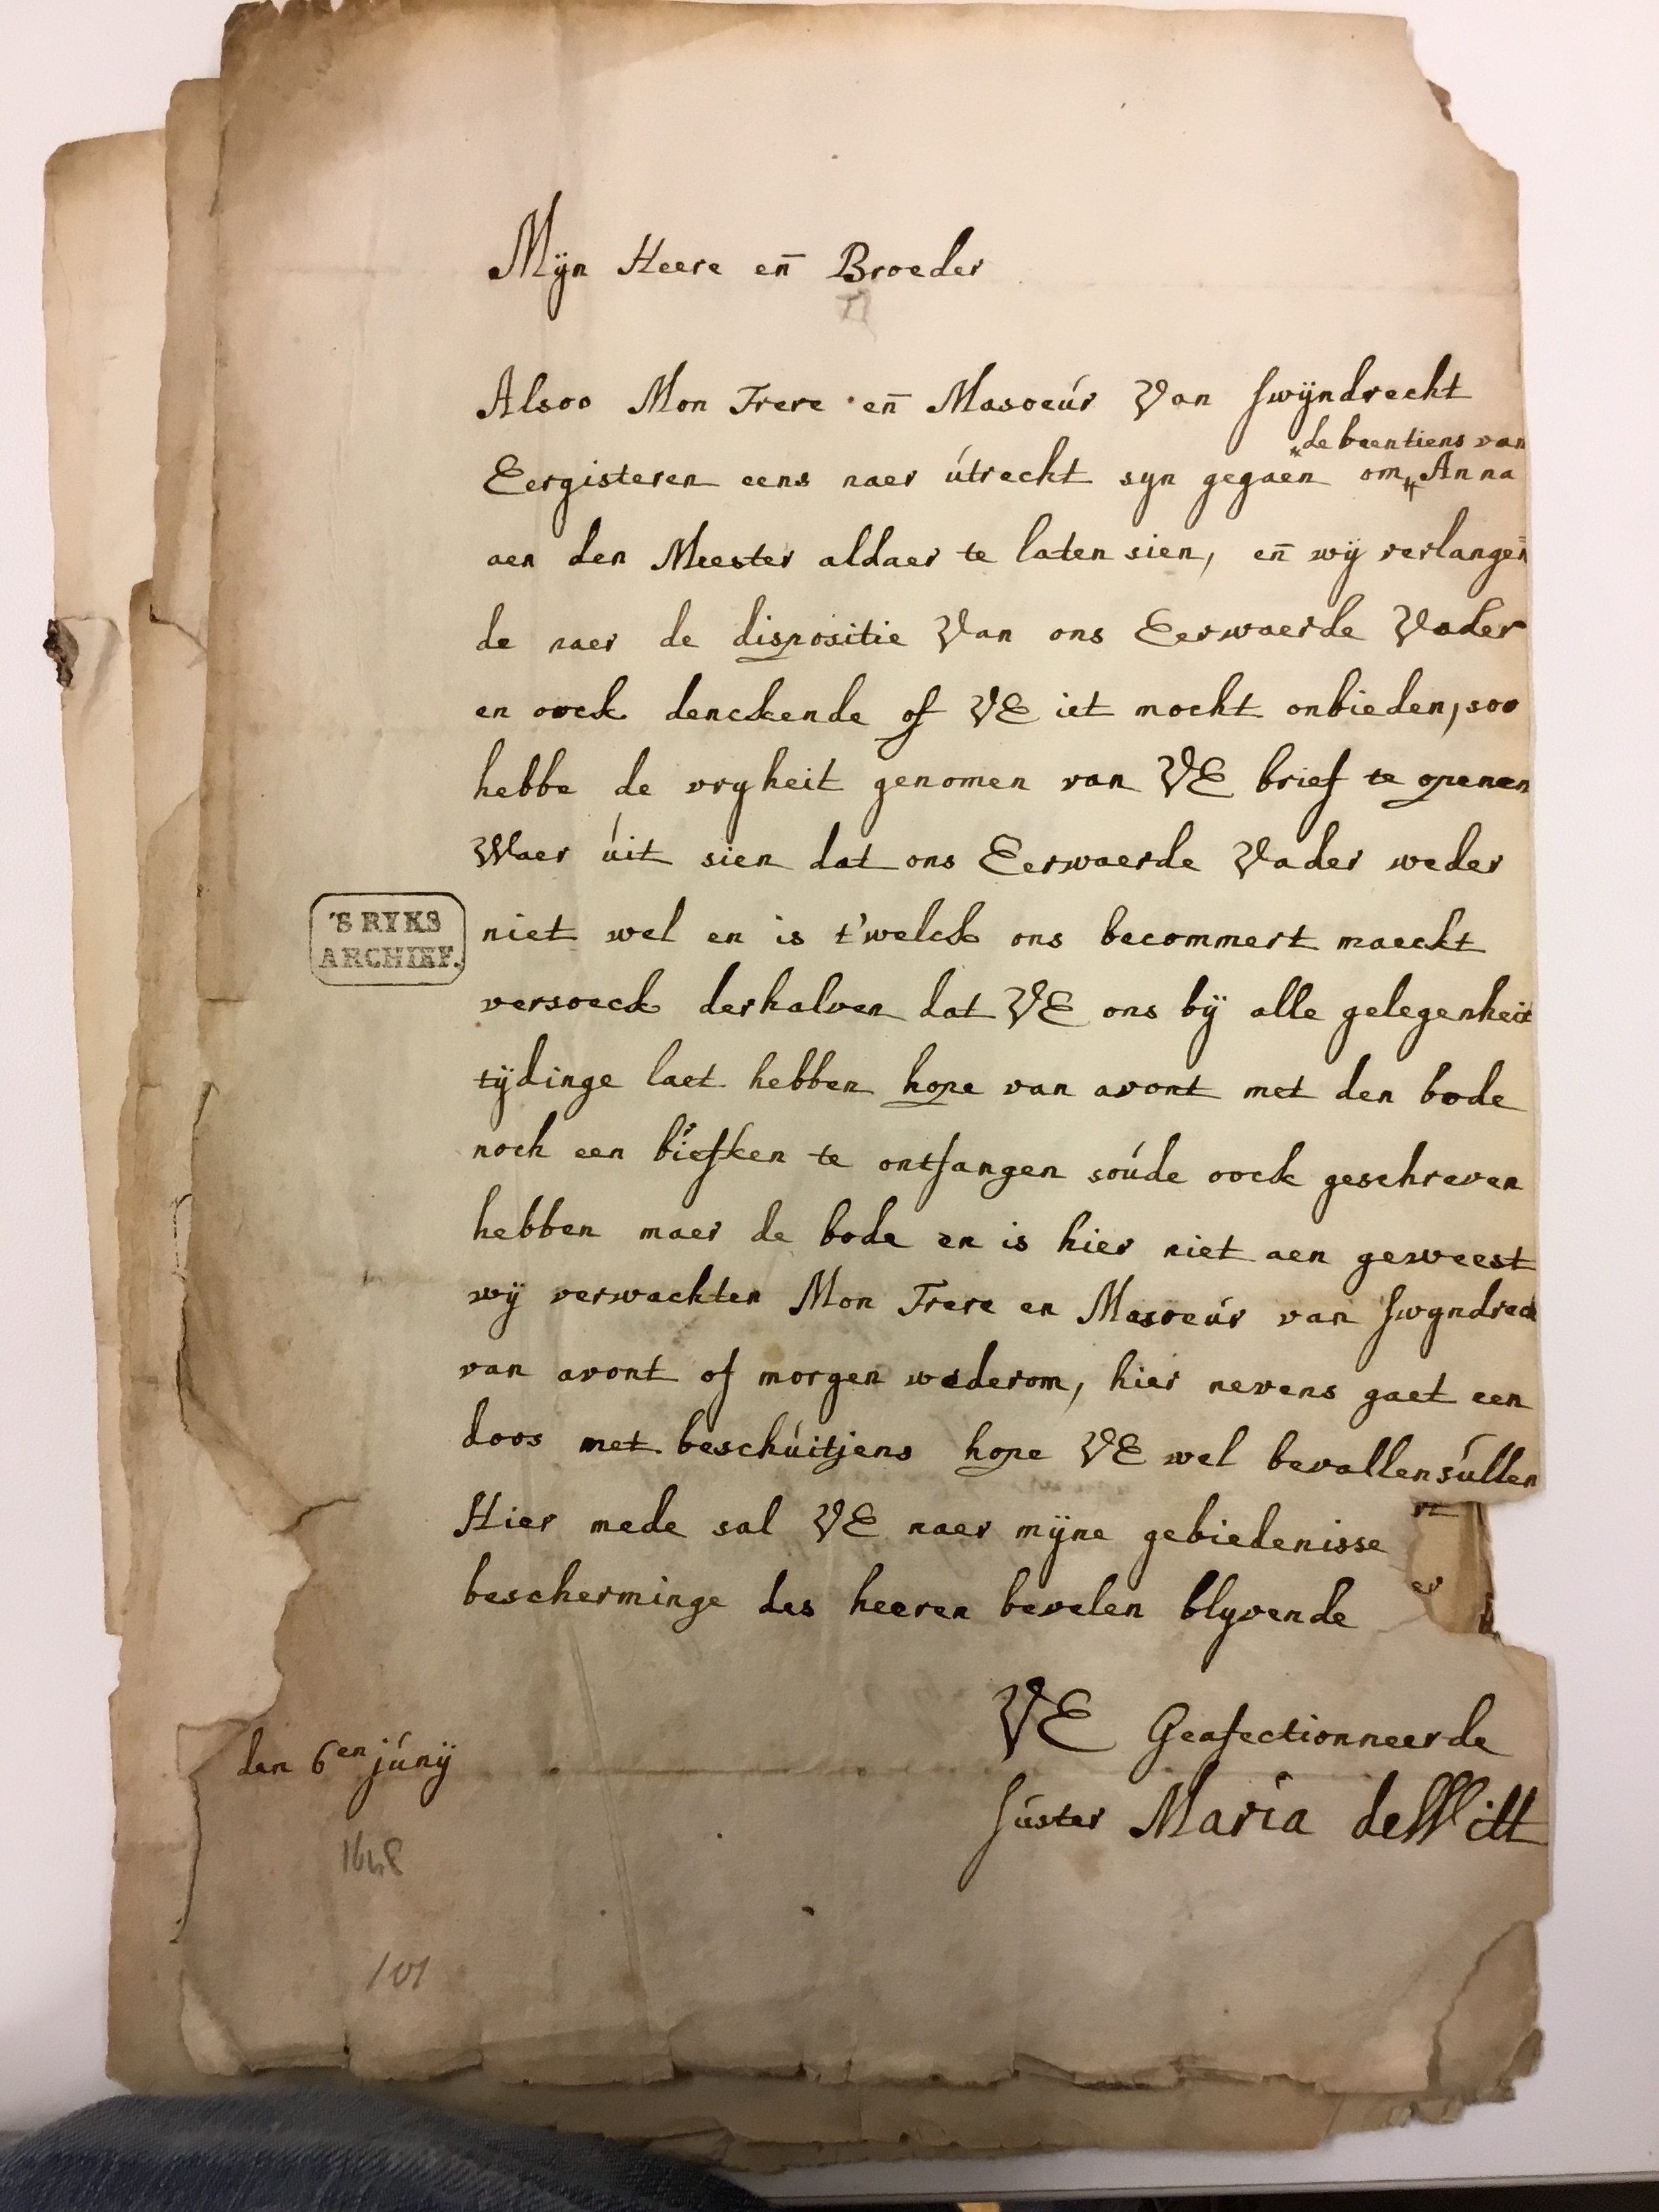 Mÿn Heere en̄ Broeder
Alsoo Mon Frere en̄ Masoeúr Van Swÿndrecht
de beentiens van
Eergisteren eens naer útrecht syn gegaen om Anna
aen den Meester aldaer te laten sien, en̄ wÿ verlangen
de naer de dispositie Van ons Eerwaerde Vader
en oock denckende of VE iet mocht onbieden, soo
hebbe de vryheit genomen van VE brief te openen
Waer úit sien dat ons Eerwaerde Vader weder
niet wel en is t'welck ons becommert maeckt
'S RYKS
ARCHIEF.
versoeck derhalven dat VE ons bÿ alle gelegenheit
tÿdinge laet hebben hope van avont met den bode
noch een briefken te ontfangen soúde oock geschreven
hebben maer de bode en is hier niet aen geweest
wÿ verwachten Mon Frere en Masoeúr van Swyndrech
van avont of morgen wederom, hier nevens gaet een
doos met beschúitjens hope VE wel bevallen súllen
Hier mede sal VE naer mÿne gebiedenisse
bescherminge des heeren bevelen blyvende
VE Geafectionneerde
den 6en júnÿ
Súster Maria deWitt
1648
101